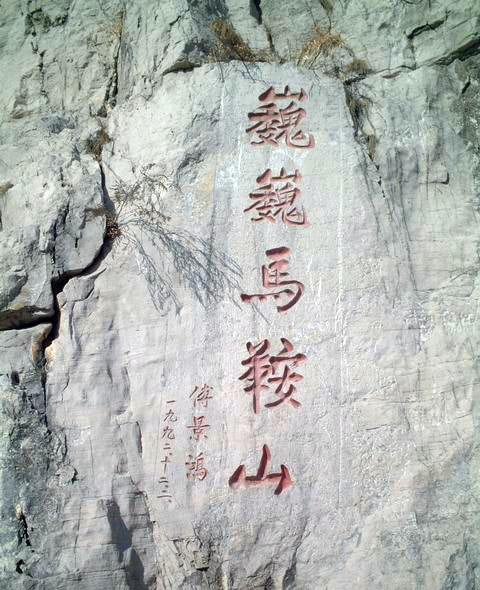 巍巍馬鞍山
傅景鴻
一九九二.十二.二